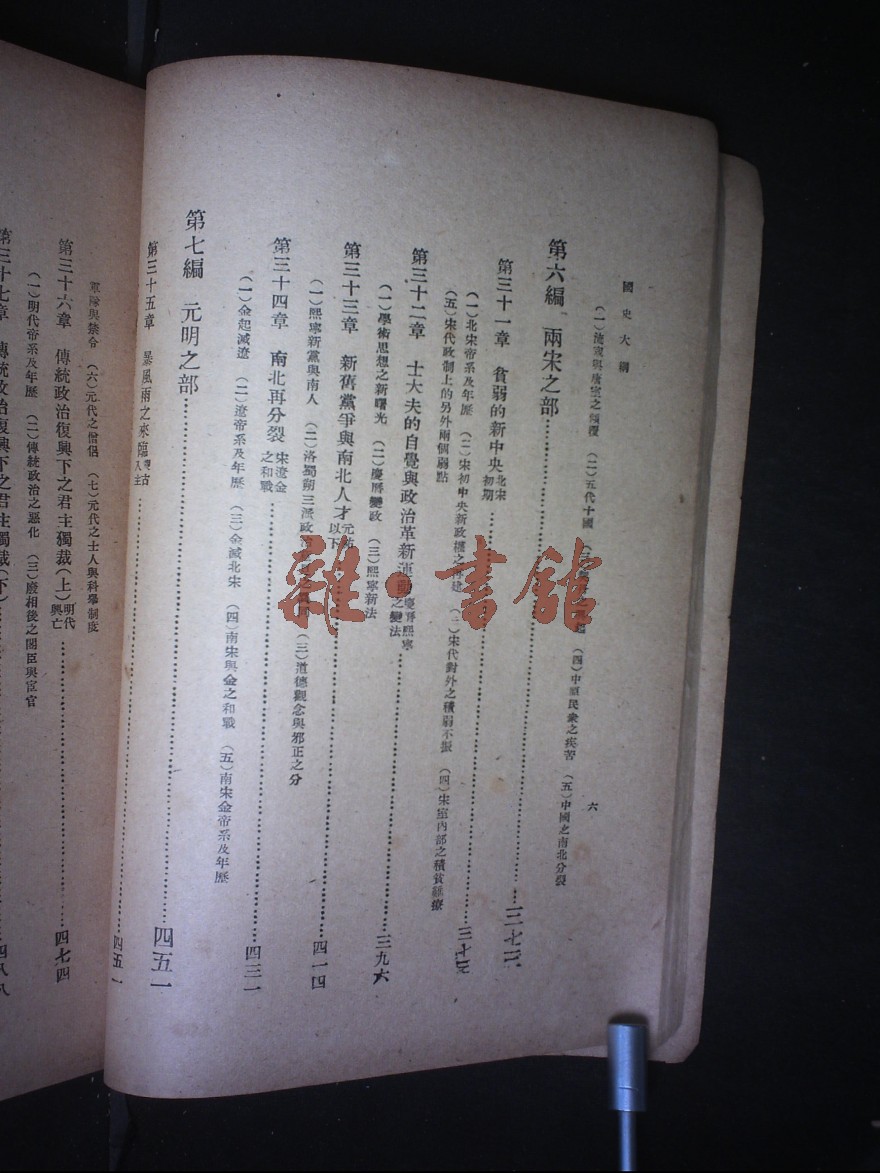 國史大綱
（一）流寇與唐室之傾覆　（二）五代十國　（四）中原民衆之疾苦　（五）中國之南北分裂
六
第六編　兩宋之部……三七三
第三十一章　貧弱的新中央北宋初期……三七三
（一）北宋帝系及年歷　（二）宋初中央新政權之再建　（三）宋代對外之積弱不振　（四）宋室內部之積貧難療
（五）宋代政制上的另外兩個弱點
第三十二章　士大夫的自覺與政治革新運動慶曆熙寧之變法……三九六
（一）學術思想之新曙光　（二）慶曆變政　（三）熙寧新法
第三十三章　新舊黨爭與南北人才元祐以下……四一四
（一）熙寧新黨與南人　（二）洛蜀朔三派政　（三）道德觀念與邪正之分
第三十四章　南北再分裂宋遼金之和戰……四三一
（一）金起滅遼　（二）遼帝系及年歷　（三）金滅北宋　（四）南宋與金之和戰　（五）南宋金帝系及年歷
第七編　元明之部……四五一
第三十五章　暴風雨之來臨蒙古入主……四五一
軍隊與禁令　（六）元代之僧侶　（七）元代之士人與科擧制度
第三十六章　傳統政治復興下之君主獨裁（上）明代興亡……四七四
（一）明代帝系及年歷　（二）傳統政治之惡化　（三）廢相後之閣臣與宦官
第三十七章　傳統政治復興下之君主獨裁（下）……四八八
雜·書館